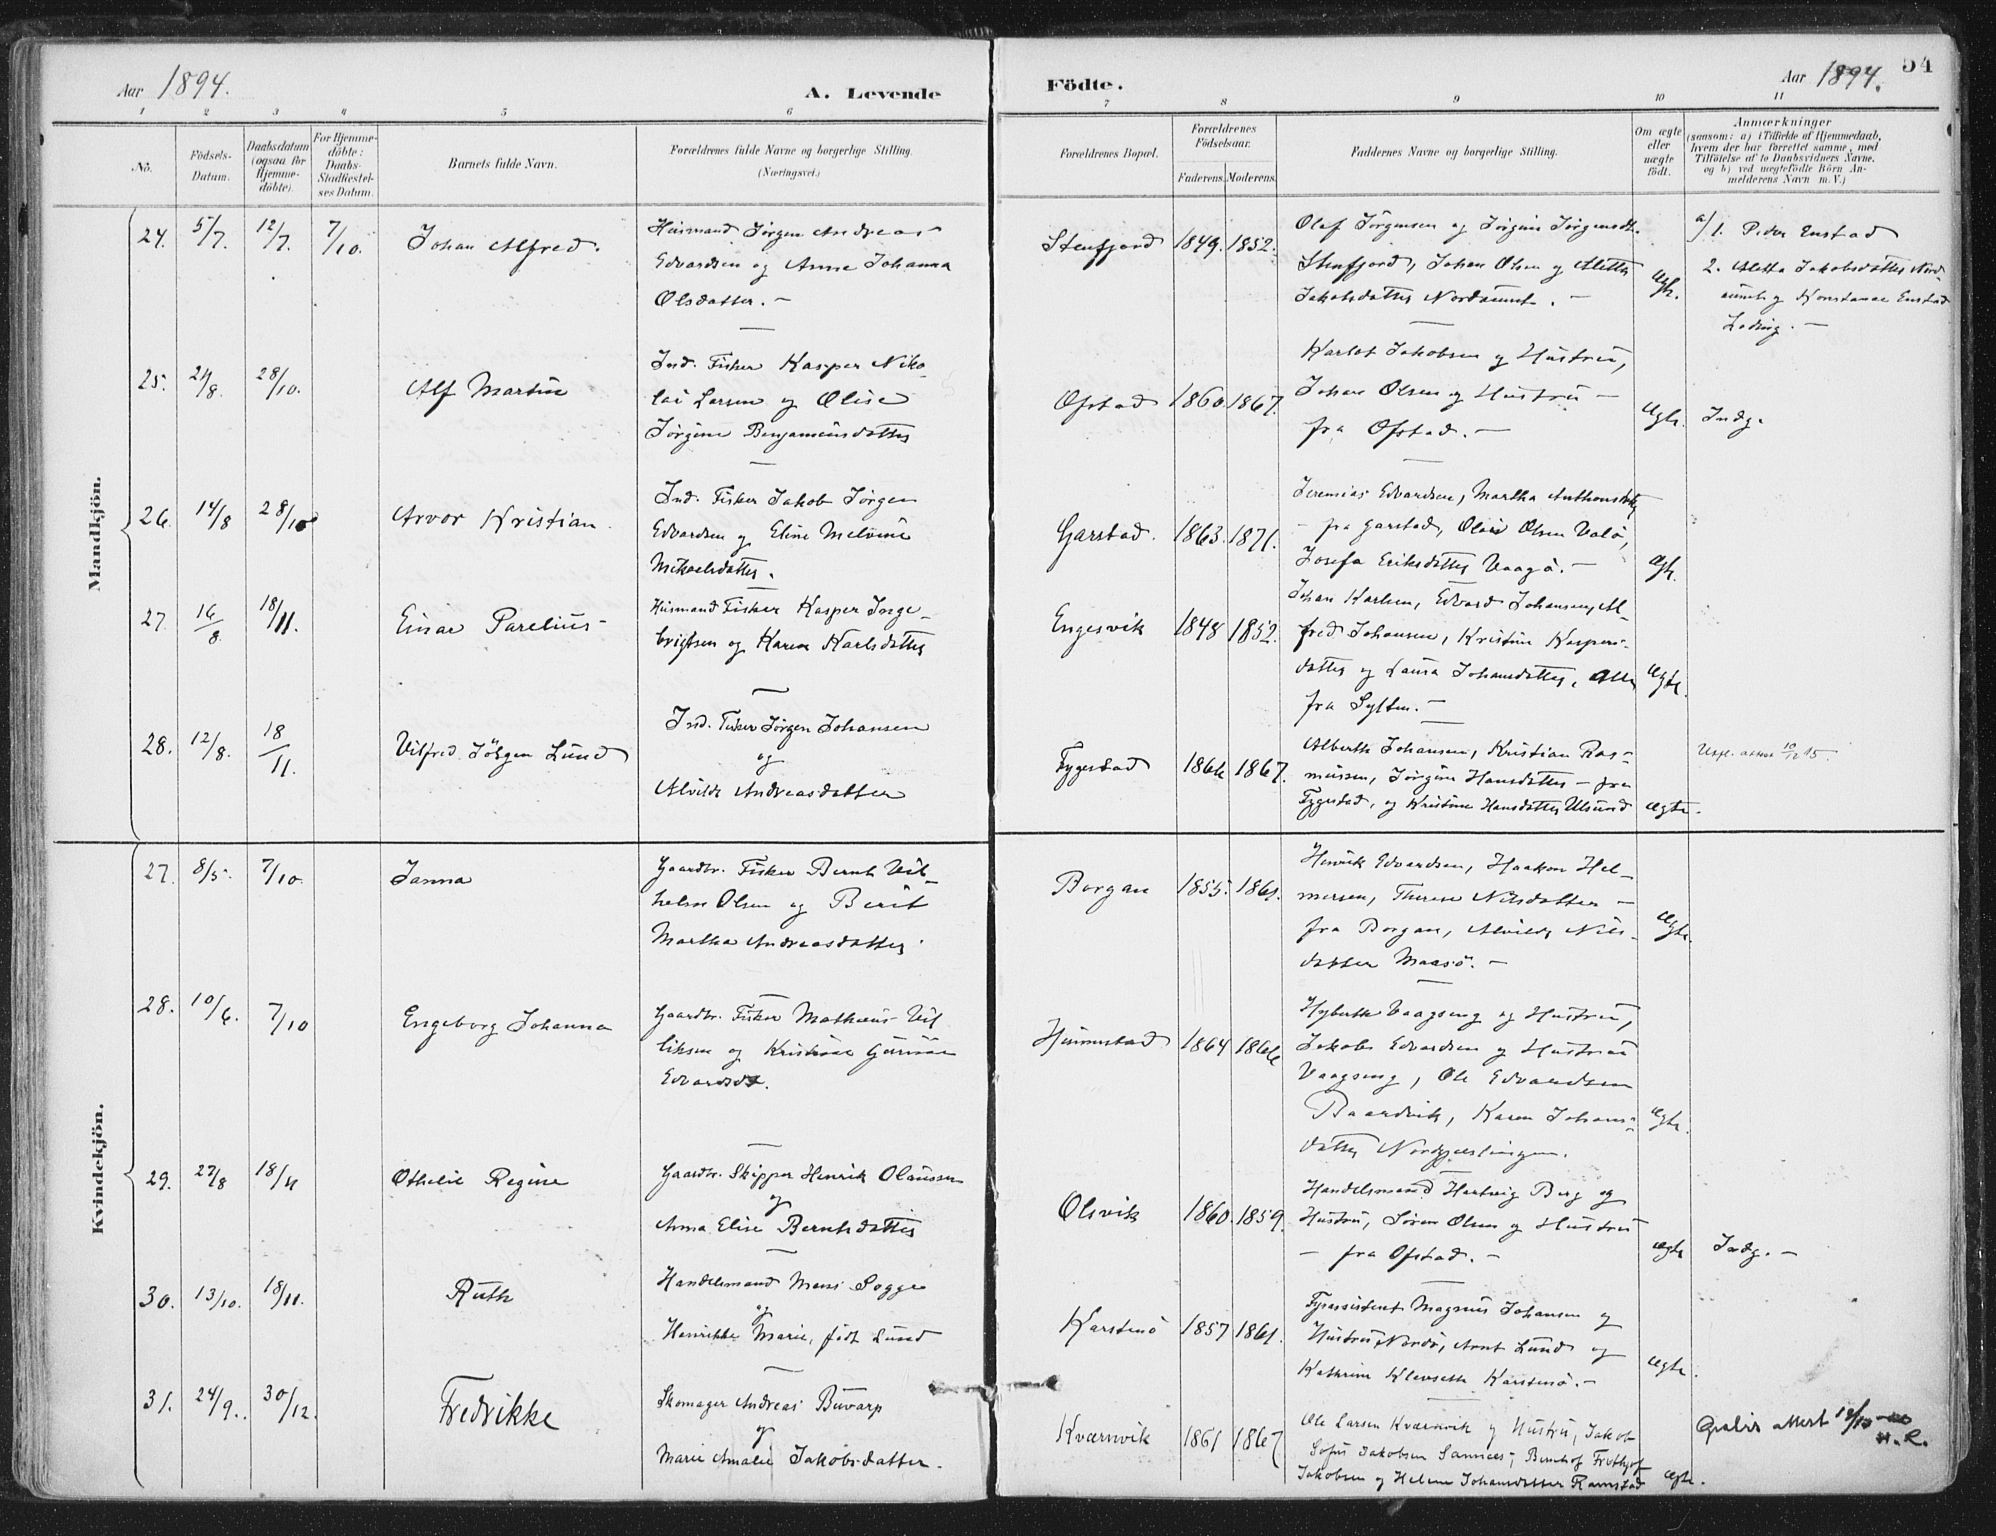 Aar 1894.
A. Levende
Födte.
Aar 1894.
54
1 2 3 4 5 6 7 8 9 10 11
No.
Födsels-
Datum.
Daabsdatum
(ogsaa for
Hjemme-
döbte).
For Hjemme-
döbte:
Daabs-
Stadfæstel-
ses Datum.
Barnets fulde Navn.
Forældrenes fulde Navne og borgerlige Stilling.
(Næringsvei.)
Forældrenes Bopæl.
Forældrenes
Födselsaar.
Faderens.
Moderens.
Faddernes Navne og borgerlige Stilling.
Om ægte
eller
uægte
födt.
Anmærkninger
(saasom: a) i Tilfælde af Hjemmedaab,
hvem der har forrettet samme, med
Tilföielse af to Daabsvidners Navne,
og b) ved uægtefödte Börn An-
melderens Navn m. V.)
Mandkjön.
24. 5/7. 12/7. 7/10. Johan Alfred.
Husmand Jørgen Andreas
Edvardsen og Anne Johanna
Olsdatter. —
Stenfjord 1849. 1852.
Olaf Jørgensen og Jørgine Jørgensdt.
Stenfjord, Johan Olsen og Aletta
Jakobsdatter Nordaunet. —
ægte.
a/ 1. Peder Enstad
2. Aletta Jakobsdatter Nord-
aunet og Konstanse Enstad
25. 24/8. 28/10. Alf Martin
Ind. Fisker Kasper Niko-
lai Larsen og Olise
Jørgine Benjaminsdatter
Ofstad 1860 1867.
Karlot Jakobsen og Hustru,
Johan Olsen og Hustru —
fra Ofstad. —
ægte. Indg.
26. 14/8 28/10 Arvor Kristian.
Ind. Fisker Jakob Jørgen
Edvardsen og Eline Melvine
Mikaelsdatter.
Garstad. 1863. 1871.
Jeremias Edvardsen, Martha Anthonsdatter
— fra Garstad, Olai Olsen Valø,
Josefa Eriksdatter Vaagø. —
ægte.
27. 16/8 18/11. Einar Parelius
Husmand Fisker Kasper Inge-
brigtsen og Karen Karlsdatter
Engesvik 1848 1852.
Johan Karlsen, Edvard Johansen, Al-
fred Johansen, Kristine Kaspers-
datter og Laura Johansdatter, alle
fra Sylten. —
ægte.
28. 12/8. 18/11. Vilfred Jörgen Lund
Ind. Fisker Jørgen Johansen
og
Alvilde Andreasdatter
Fygestad 1866 1867.
Alberth Johansen, Kristian Ras-
mussen, Jørgine Hansdatter — fra
Fygestad, og Kristine Hansdatter Ulsund
ægte.
Utfl. attest 10/12 15.
Kvindekjön.
27. 8/5. 7/10. Janna
Gaardbr. Fisker Bernt Vil-
helm Olsen og Berit
Martha Andreasdatter.
Borgan 1855. 1861.
Henrik Edvardsen, Haakon Hel-
mersen, Therese Nilsdatter —
fra Borgan, Alvilde Nils-
datter Maasø. —
ægte.
28. 10/6. 7/10 Engeborg Johanna
Gaardbr. Fisker Matheus Vil-
liksen og Kristine Gurine
Edvardsdt.
Humustad 1864 1866
Hyberth Vaagseng og Hustru,
Jakob Edvardsen og Hustru
Vaagseng, Ole Edvardsen
Baardvik, Karen Johans-
datter Nordgjæslingen.
ægte.
29. 27/8 18/11 Othelie Regine
Gaardbr. Skipper Henrik Olaussen
og
Anna Elise Berntsdatter
Olsvik 1860. 1859.
Handelsmand Hartvig Berg og
Hustru, Søren Olsen og Hustru
— fra Ofstad. —
ægte Indg. —
30. 13/10. 18/11. Ruth
Handelsmand Mons Sogge
og
Henrikke Marie, født Lund
Karstenø 1857 1861.
Fyrassistent Magnus Johansen og
Hustru, Nordø, Arnt Lund og
Kathrine Klevseth Karstenø. —
ægte.
31. 24/9. 30/12. Fredrikke
Skomager Andreas Buvarp
og
Marie Amalie Jakobsdatter.
Kværnvik 1861 1867
Ole Larsen Kværnvik og Hustru, Jakob
Sofus Jakobsen Sannæs, Bernhof Frithjof
Jakobsen og Helene Johansdatter Ramstad
ægte.
Gratis attest